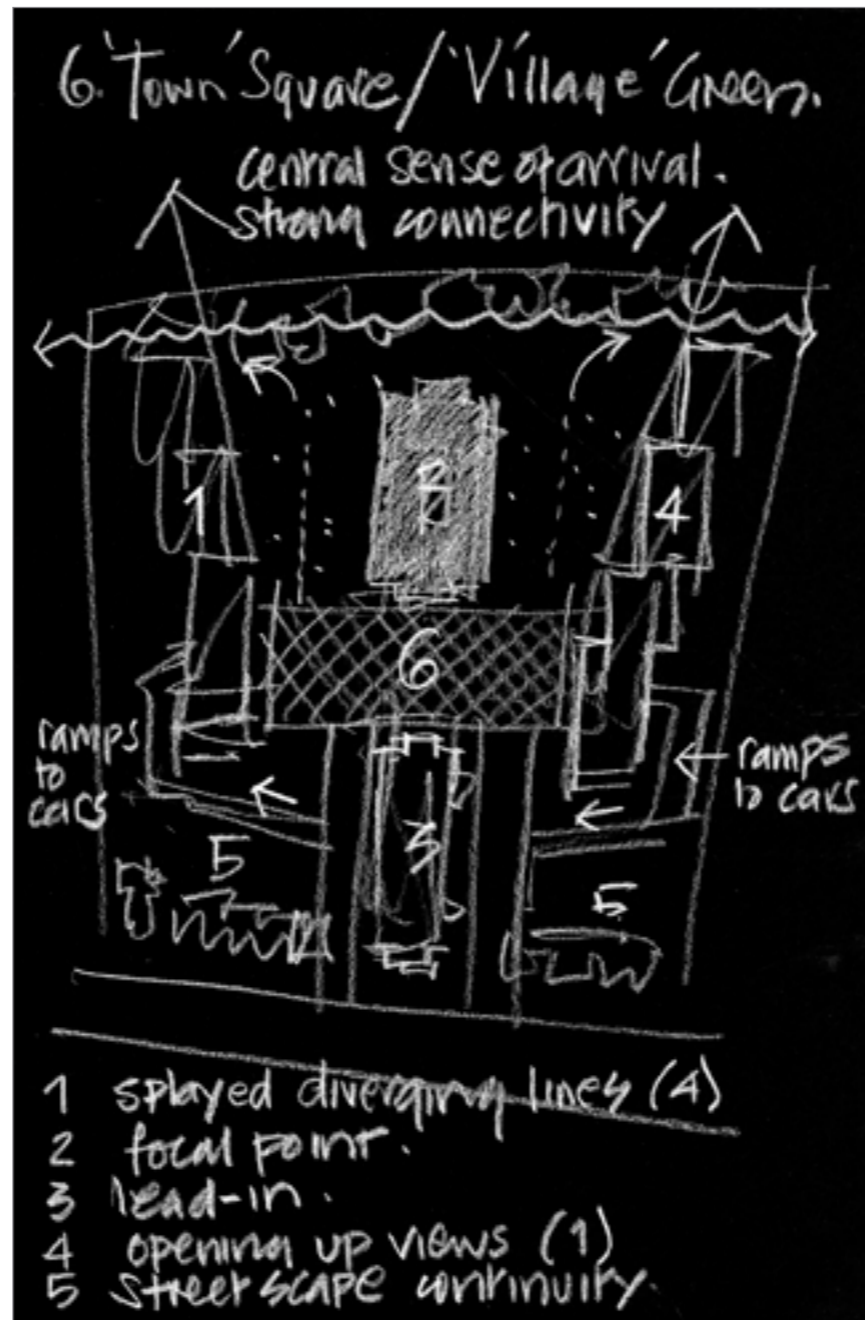 6. 'Town' Square/'Village' Green.
central sense of arrival.
strong connectivity
1
2
4
6
ramps
to
cars
ramps
to cars
3
5
5
1 splayed diverging lines (4)
2 focal point.
3 lead-in.
4 opening up views (1)
5 streetscape continuity.